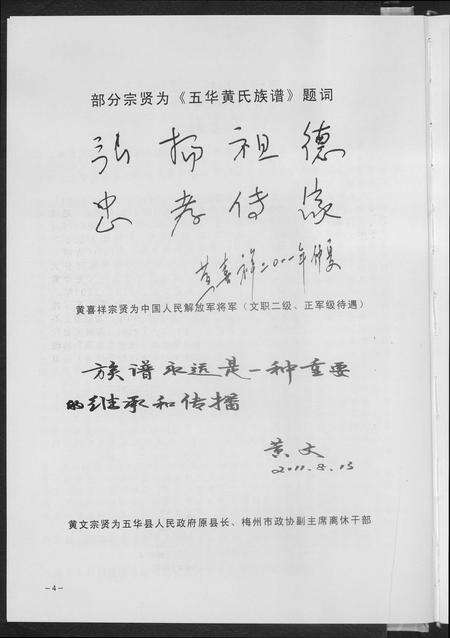 部分宗贤为《五华黄氏族谱》题词
弘扬祖德
忠孝传家
黄喜祥二〇一一年仲夏
黄喜祥宗贤为中国人民解放军将军（文职二级、正军级待遇）
族谱永远是一种重要
的继承和传播
黄文
2011.8.15
黄文宗贤为五华县人民政府原县长、梅州市政协副主席离休干部
-4-